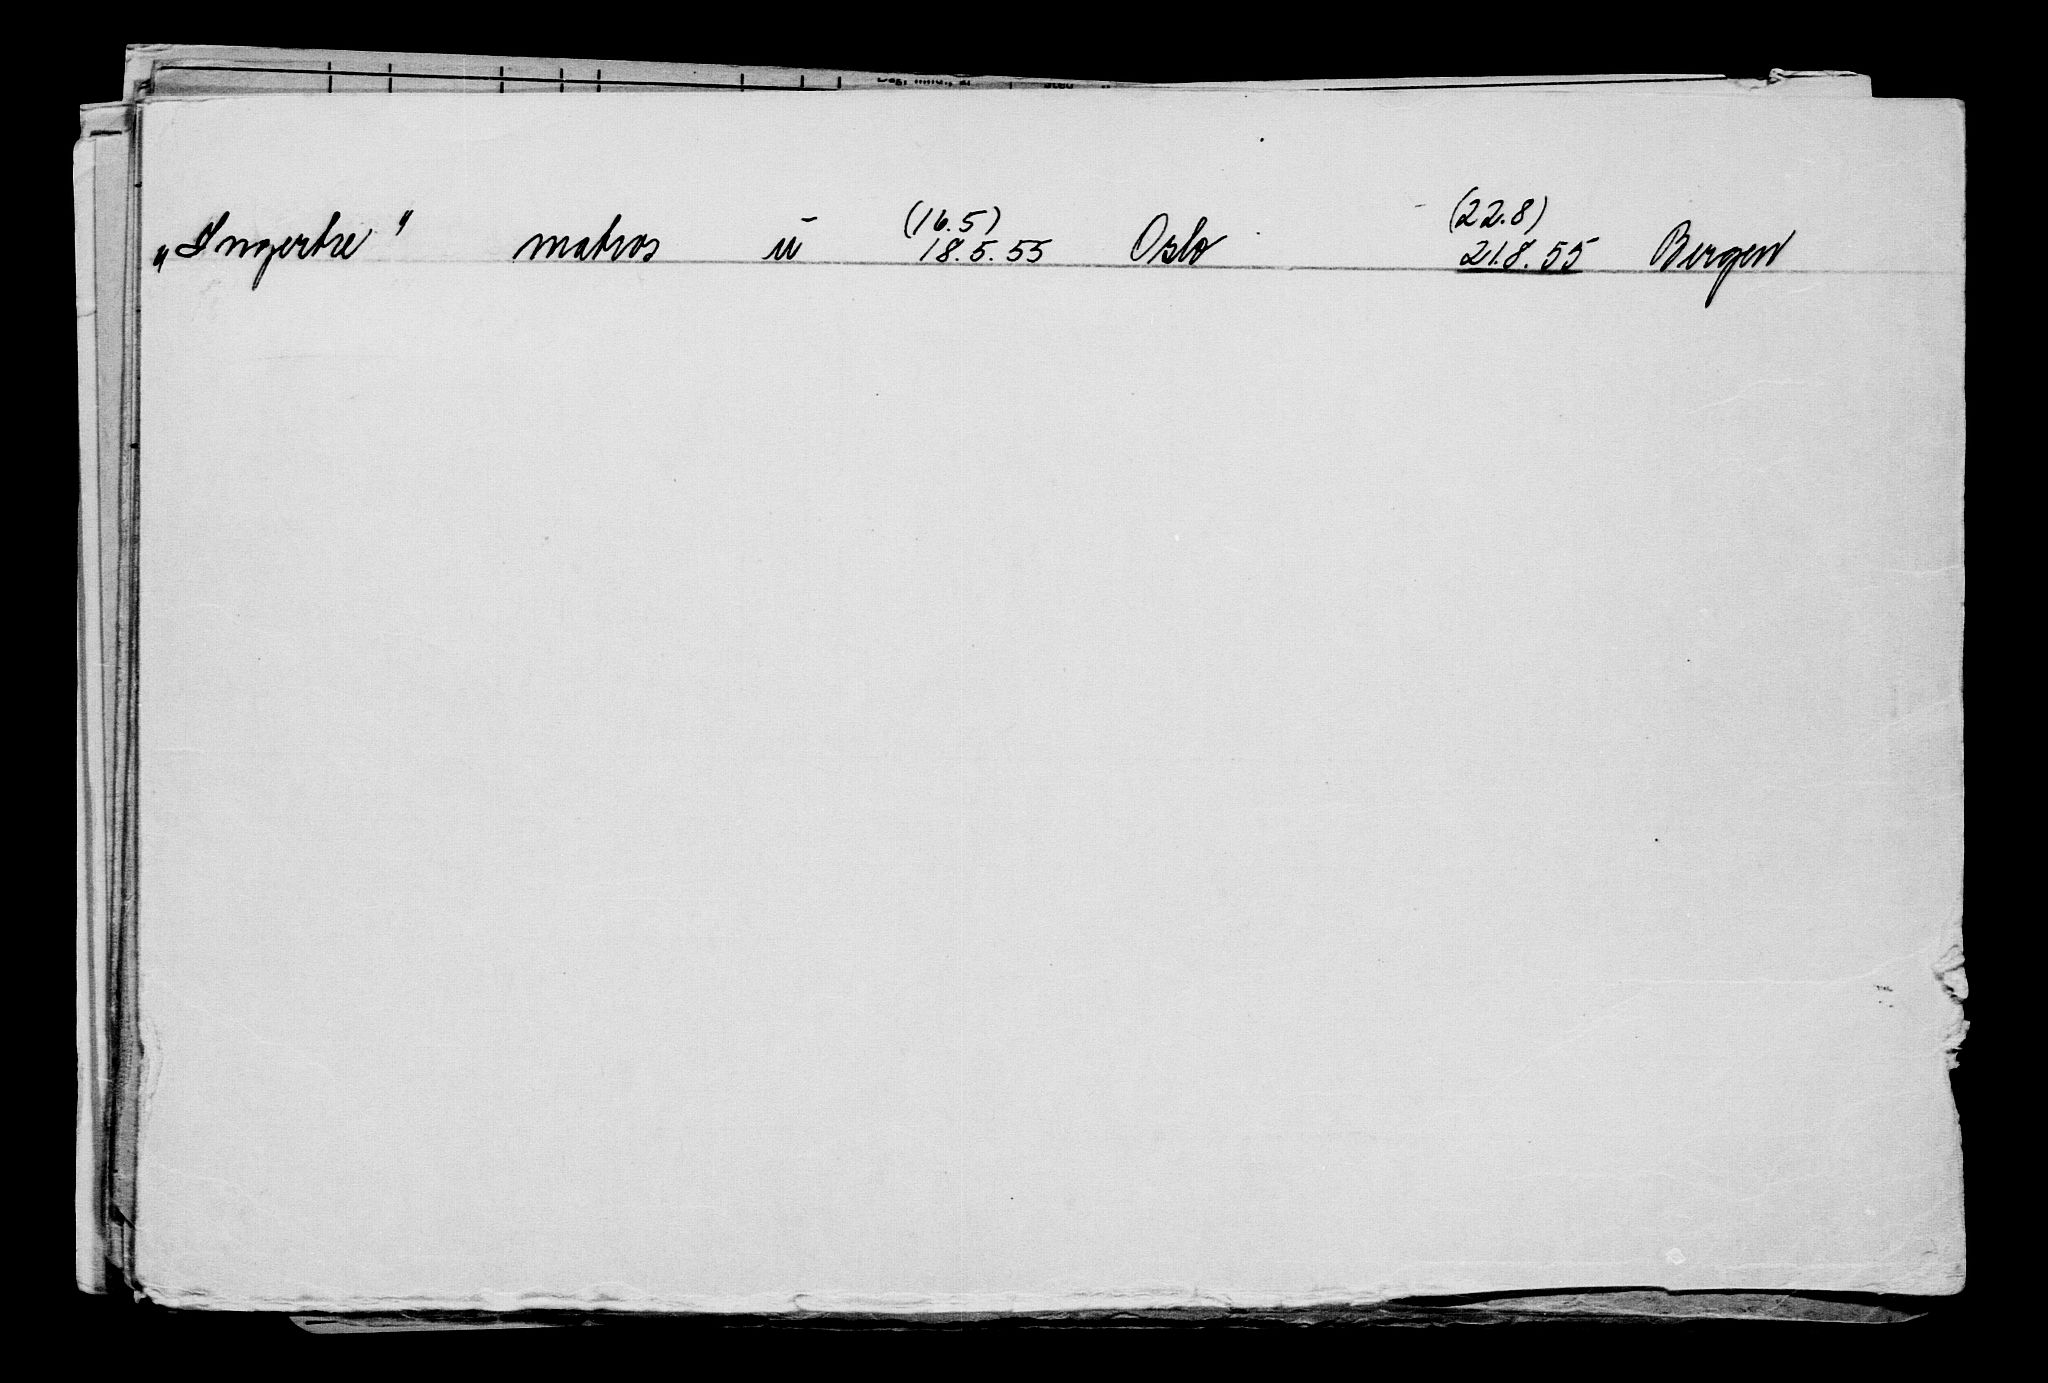 (16.5) (22.8)
„Ingertre" matros ū 18.5.55 Oslo 21.8.55 Bergen